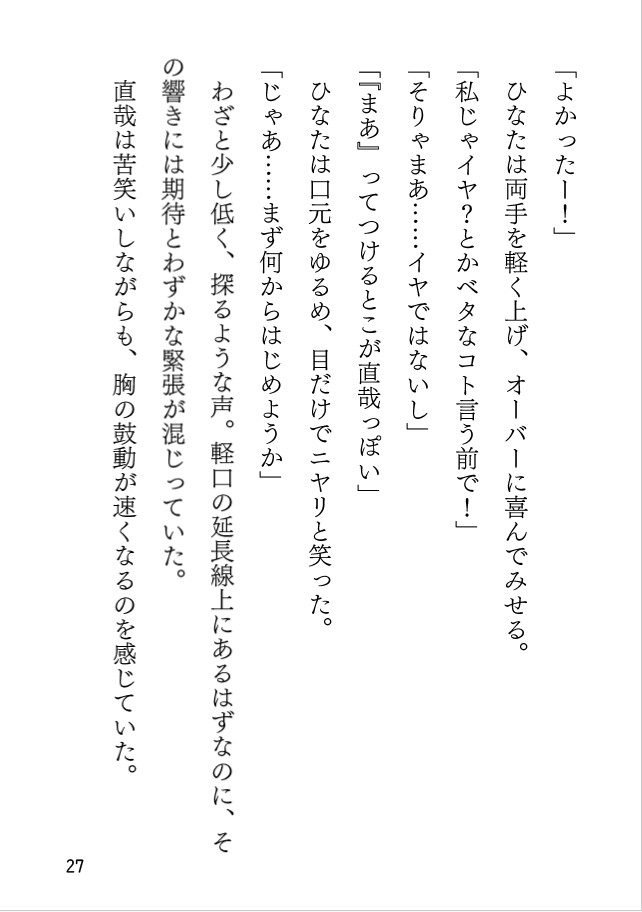 「よかったー！」
ひなたは両手を軽く上げ、オーバーに喜んでみせる。
「私じゃイヤ？とかベタなコト言う前で！」
「そりゃまあ……イヤではないし」
「『まあ』ってつけるとこが直哉っぽい」
ひなたは口元をゆるめ、目だけでニヤリと笑った。
「じゃあ……まず何からはじめようか」
わざと少し低く、探るような声。軽口の延長線上にあるはずなのに、そ
の響きには期待とわずかな緊張が混じっていた。
直哉は苦笑いしながらも、胸の鼓動が速くなるのを感じていた。
27